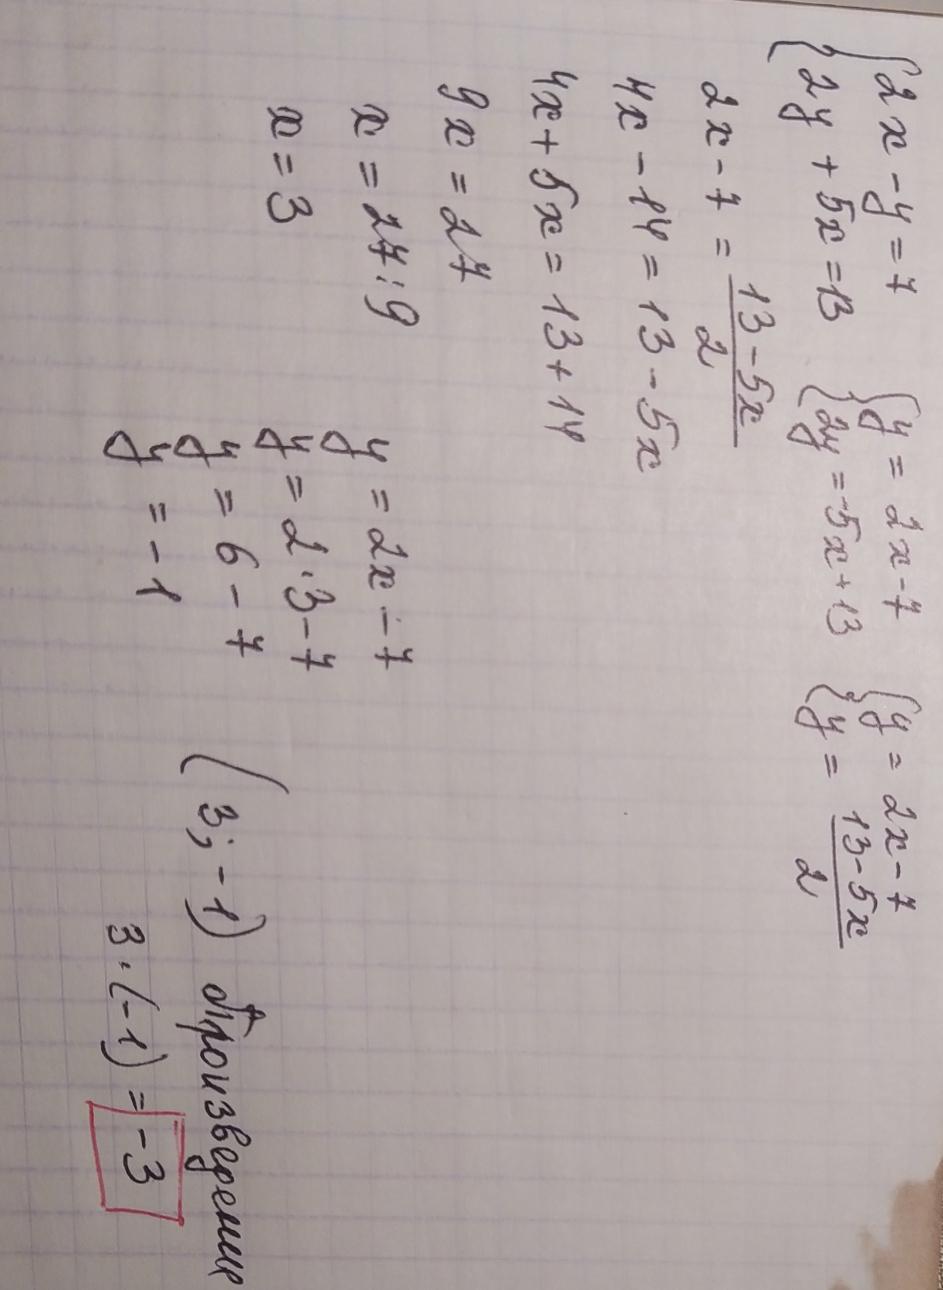 {2x - y = 7 {y = 2x - 7 {y = 2x - 7
{2y + 5x = 13 {2y = -5x + 13 {y = (13 - 5x)/2
2x - 7 = (13 - 5x)/2
4x - 14 = 13 - 5x
4x + 5x = 13 + 14
9x = 27
x = 27 : 9
x = 3
y = 2x - 7
y = 2·3 - 7
y = 6 - 7
y = -1
(3; -1) Произведение
3·(-1) = -3